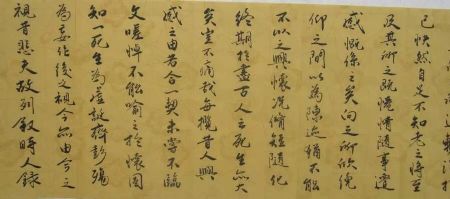 已快然自足不知老之將至
及其所之既惓情隨事遷
感慨係之矣向之所欣俛
仰之間以為陳迹猶不能
不以之興懷況脩短隨化
終期於盡古人云死生亦大
矣豈不痛哉每攬昔人興
感之由若合一契未嘗不臨
文嗟悼不能喻之於懷固
知一死生為虛誕齊彭殤
為妄作後之視今亦由今之
視昔悲夫故列敘時人錄